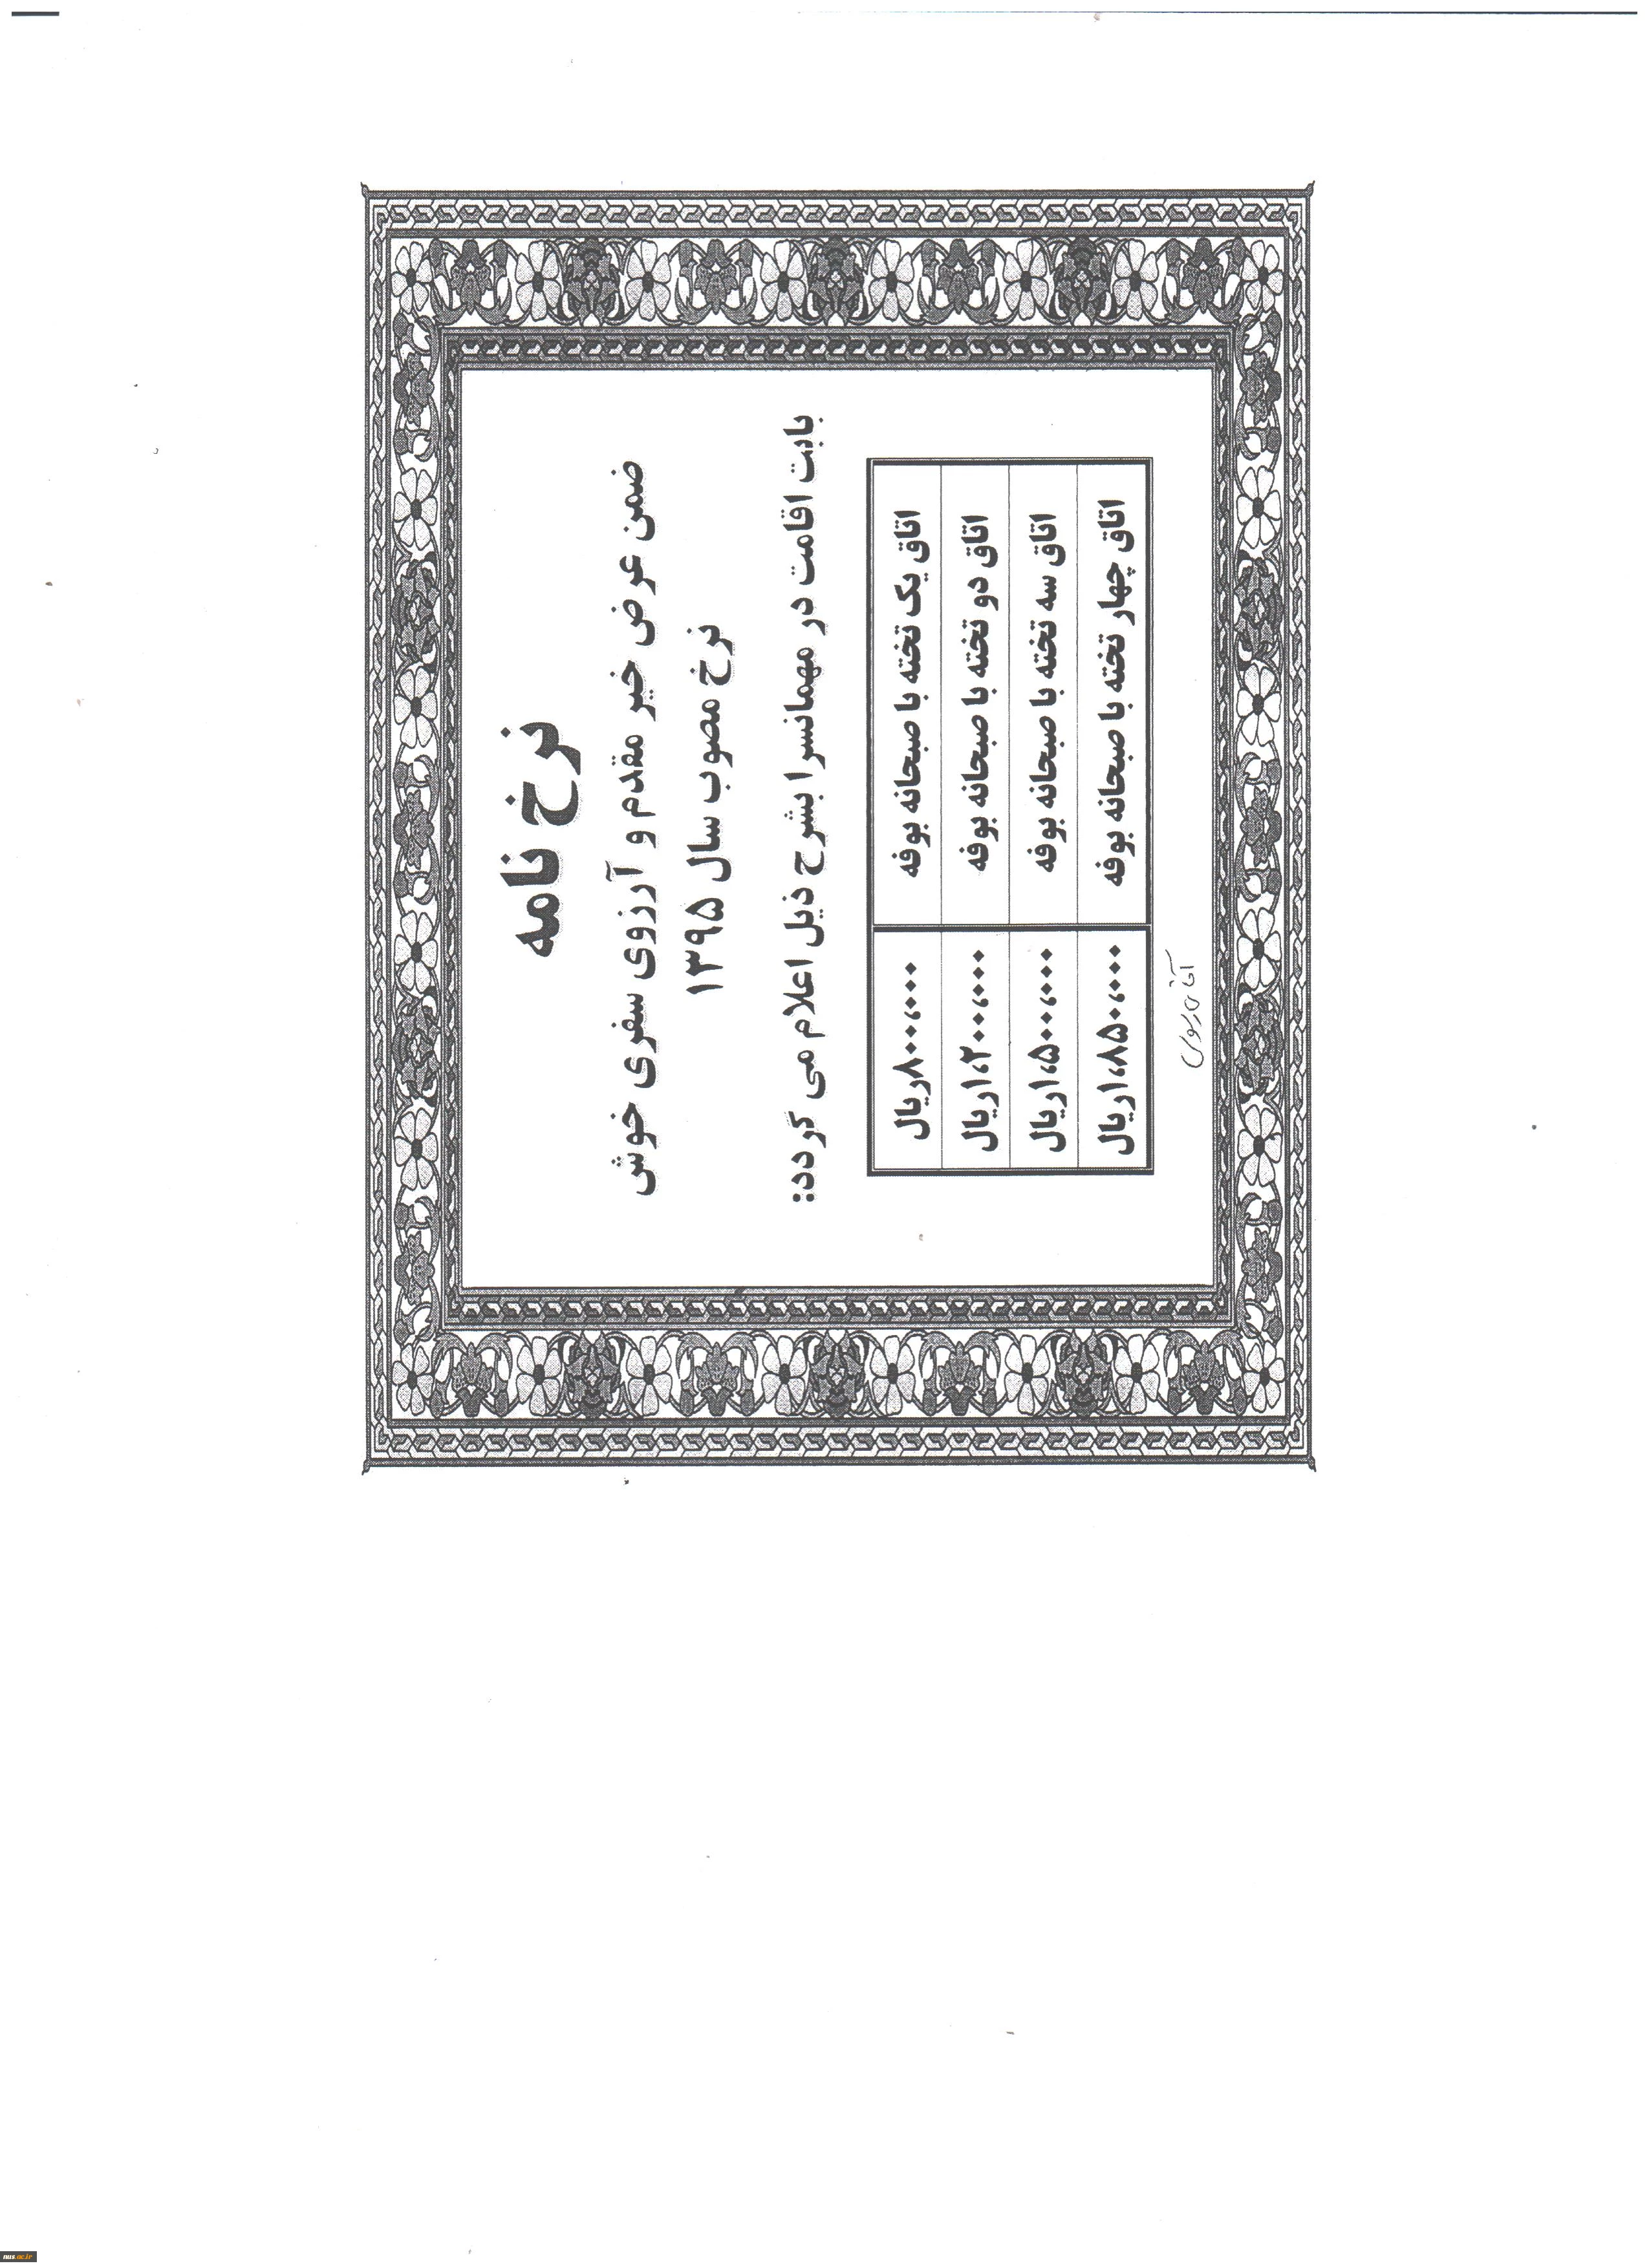 نرخ نامه
ضمن عرض خیر مقدم و آرزوی سفری خوش
نرخ مصوب سال ۱۳۹۵
بابت اقامت در مهمانسرا بشرح ذیل اعلام می گردد:
اتاق یک تخته با صبحانه بوفه ۸۰۰،۰۰۰ریال
اتاق دو تخته با صبحانه بوفه ۱،۲۰۰،۰۰۰ریال
اتاق سه تخته با صبحانه بوفه ۱،۵۰۰،۰۰۰ریال
اتاق چهار تخته با صبحانه بوفه ۱،۸۵۰،۰۰۰ریال
nus.ac.ir